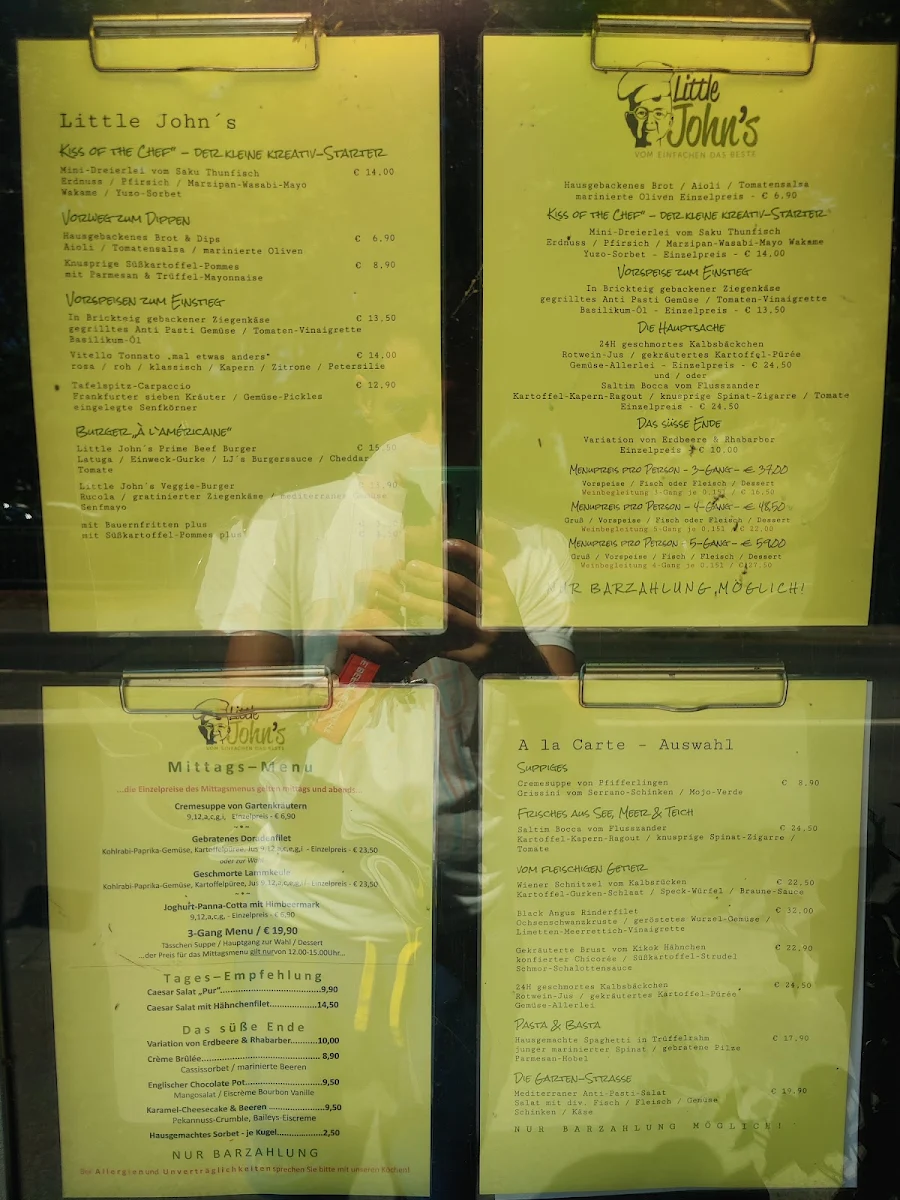 Little John´s
KISS OF THE CHEF" – DER KLEINE KREATIV–STARTER
Mini-Dreierlei vom Saku Thunfisch € 14,00
Erdnuss / Pfirsich / Marzipan-Wasabi-Mayo
Wakame / Yuzo-Sorbet
VORWEG ZUM DIPPEN
Hausgebackenes Brot & Dips € 6,90
Aioli / Tomatensalsa / marinierte Oliven
Knusprige Süßkartoffel-Pommes € 8,90
mit Parmesan & Trüffel-Mayonnaise
VORSPEISEN ZUM EINSTIEG
In Brickteig gebackener Ziegenkäse € 13,50
gegrilltes Anti Pasti Gemüse / Tomaten-Vinaigrette
Basilikum-Öl
Vitello Tonnato „mal etwas anders" € 14,00
rosa / roh / klassisch / Kapern / Zitrone / Petersilie
Tafelspitz-Carpaccio € 12,90
Frankfurter sieben Kräuter / Gemüse-Pickles
eingelegte Senfkörner
BURGER „À L`AMÉRICAINE"
Little John´s Prime Beef Burger €
Latuga / Einweck-Gurke / LJ´s Burgersauce / Cheddar
Tomate
Little John´s Veggie-Burger
Rucola / gratinierter Ziegenkäse / mediterranes
Senfmayo
mit Bauernfritten plus
mit Süßkartoffel-Pommes plus
Little
John's
VOM EINFACHEN DAS BESTE
Hausgebackenes Brot / Aioli / Tomatensalsa
marinierte Oliven Einzelpreis - € 6,90
KISS OF THE CHEF" – DER KLEINE KREATIV–STARTER
Mini-Dreierlei vom Saku Thunfisch
Erdnuss / Pfirsich / Marzipan-Wasabi-Mayo Wakame
Yuzo-Sorbet - Einzelpreis - € 14,00
VORSPEISE ZUM EINSTIEG
In Brickteig gebackener Ziegenkäse
gegrilltes Anti Pasti Gemüse / Tomaten-Vinaigrette
Basilikum-Öl - Einzelpreis - € 13,50
DIE HAUPTSACHE
24H geschmortes Kalbsbäckchen
Rotwein-Jus / gekräutertes Kartoffel-Pürée
Gemüse-Allerlei - Einzelpreis - € 24,50
und / oder
Saltim Bocca vom Flusszander
Kartoffel-Kapern-Ragout / knusprige Spinat-Zigarre / Tomate
Einzelpreis - € 24,50
DAS SÜSSE ENDE
Variation von Erdbeere & Rhabarber
Einzelpreis - € 10,00
MENUPREIS PRO PERSON – 3–GANG – € 39,00
Vorspeise / Fisch oder Fleisch / Dessert
Weinbegleitung 3-Gang je 0,15l / € 16,50
MENUPREIS PRO PERSON – 4–GANG – € 48,50
Gruß / Vorspeise / Fisch oder Fleisch / Dessert
Weinbegleitung 4-Gang je 0,15l / € 22,00
MENUPREIS PRO PERSON – 5–GANG – € 59,00
Gruß / Vorspeise / Fisch / Fleisch / Dessert
Weinbegleitung 4-Gang je 0,15l / € 27,50
NUR BARZAHLUNG MÖGLICH!
Little
John's
VOM EINFACHEN DAS BESTE
Mittags–Menu
...die Einzelpreise des Mittagsmenus gelten mittags und abends...
Cremesuppe von Gartenkräutern
9,12,a,c,g,i, Einzelpreis - € 6,90
Gebratenes Doradenfilet
Kohlrabi-Paprika-Gemüse, Kartoffelpüree, Jus 9,12,a,c,e,g,i - Einzelpreis - € 23,50
oder zur Wahl
Geschmorte Lammkeule
Kohlrabi-Paprika-Gemüse, Kartoffelpüree, Jus 9,12,a,c,e,g,i - Einzelpreis - € 23,50
Joghurt-Panna-Cotta mit Himbeermark
9,12,a,c,g, - Einzelpreis - € 6,90
3-Gang Menu / € 19,90
Tässchen Suppe / Hauptgang zur Wahl / Dessert
...der Preis für das Mittagsmenu gilt nur von 12.00-15.00Uhr...
Tages–Empfehlung
Caesar Salat „Pur"......9,90
Caesar Salat mit Hähnchenfilet......14,50
Das süße Ende
Variation von Erdbeere & Rhabarber......10,00
Crème Brûlée...... 8,90
Cassissorbet / marinierte Beeren
Englischer Chocolate Pot......9,50
Mangosalat / Eiscrème Bourbon Vanille
Karamel-Cheesecake & Beeren ......9,50
Pekannuss-Crumble, Baileys-Eiscreme
Hausgemachtes Sorbet - je Kugel......2,50
NUR BARZAHLUNG
Bei Allergien und Unverträglichkeiten sprechen Sie bitte mit unseren Köchen!
A la Carte – Auswahl
SUPPIGES
Cremesuppe von Pfifferlingen € 8,90
Grissini vom Serrano-Schinken / Mojo-Verde
FRISCHES AUS SEE, MEER & TEICH
Saltim Bocca vom Flusszander € 24,50
Kartoffel-Kapern-Ragout / knusprige Spinat-Zigarre /
Tomate
VOM FLEISCHIGEN GETIER
Wiener Schnitzel vom Kalbsrücken € 22,50
Kartoffel-Gurken-Schlaat / Speck-Würfel / Braune-Sauce
Black Angus Rinderfilet € 32,00
Ochsenschwanzkruste / geröstetes Wurzel-Gemüse /
Limetten-Meerrettich-Vinaigrette
Gekräuterte Brust vom Kikok Hähnchen € 22,90
konfierter Chicorée / Süßkartoffel-Strudel
Schmor-Schalottensauce
24H geschmortes Kalbsbäckchen € 24,50
Rotwein-Jus / gekräutertes Kartoffel-Pürée
Gemüse-Allerlei
PASTA & BASTA
Hausgemachte Spaghetti in Trüffelrahm € 17,90
junger marinierter Spinat / gebratene Pilze
Parmesan-Hobel
DIE GARTEN–STRASSE
Mediterraner Anti-Pasti-Salat € 19,90
Salat mit div. Fisch / Fleisch / Gemüse
Schinken / Käse
NUR BARZAHLUNG MÖGLICH!